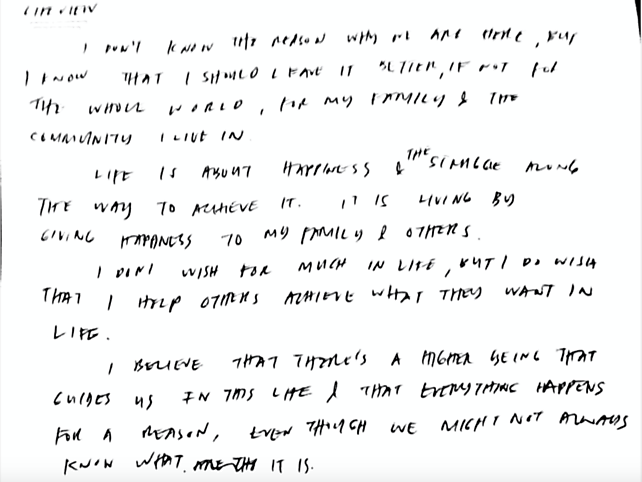 LIFE VIEW
I DON'T KNOW THE REASON WHY WE ARE HERE, BUT
I KNOW THAT I SHOULD LEAVE IT BETTER, IF NOT FOR
THE WHOLE WORLD, FOR MY FAMILY & THE
COMMUNITY I LIVE IN
LIFE IS ABOUT HAPPINESS & THE STRUGGLE ALONG
THE WAY TO ACHIEVE IT. IT IS LIVING BY
GIVING HAPPINESS TO MY FAMILY & OTHERS.
I DON'T WISH FOR MUCH IN LIFE, BUT I DO WISH
THAT I HELP OTHERS ACHIEVE WHAT THEY WANT IN
LIFE.
I BELIEVE THAT THERE'S A HIGHER BEING THAT
GUIDES US IN THIS LIFE & THAT EVERYTHING HAPPENS
FOR A REASON, EVEN THOUGH WE MIGHT NOT ALWAYS
KNOW WHAT IT IS.